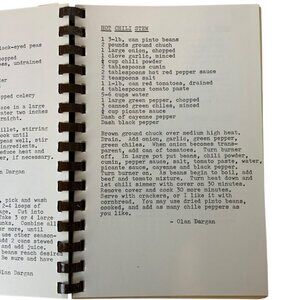 ock-eyed peas
opped
es, undrained
r
pped celery
ne in a large
ver two inches
raight.
llet, stirring
ook until
eas and, stir
ingredients.
educe heat and
er, if necessary.
, pick and wash
2-4 loops of
age. Cut into
Take 3 or 4 large
unks. Combine all
or more, until
use other season-
dd 2 cans stewed
and add juice.
beans reach desired
Be
lan Dargan
HOT CHILI STEW
1 3-lb. can pinto beans
2 pounds ground chuck
1 large onion, chopped
1 clove garlic, minced
cup chili powder
2 tablespoons cumin
2 tablespoons hot red pepper sauce
2 tablespoons salt
1 1-lb. can tomatoes, drained
4 tablespoons tomato paste
5-6 cups water
1 large green pepper, chopped
1 canned green chiles, minced
cup picante sauce
Dash of cayenne pepper
Dash black pepper
Brown ground chuck over medium high heat.
Drain. Add onion, garlic, green pepper,
green chiles. When onion becomes trans-
parent, add can of tomatoes. Turn burner
off. In large pot put beans, chili powder,
cumin, pepper sauce, salt, tomato paste, water,
picante sauce, cayenne and black pepper.
Turn burner on. As beans begin to boil, add
beef and tomato mixture. Turn heat down and
let chili simmer with cover on 30 minutes.
Remove cover and cook 30 more minutes.
Serve with crackers, or I like it with
cornbread. You may use dried pinto beans,
cooked, and add as many chile peppers as
you like.
- Olan Dargan